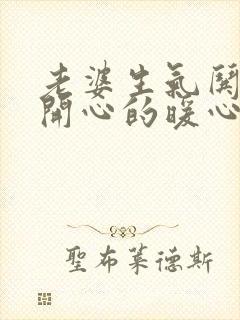 老婆生氣關
開心的暖心
聖布萊德斯